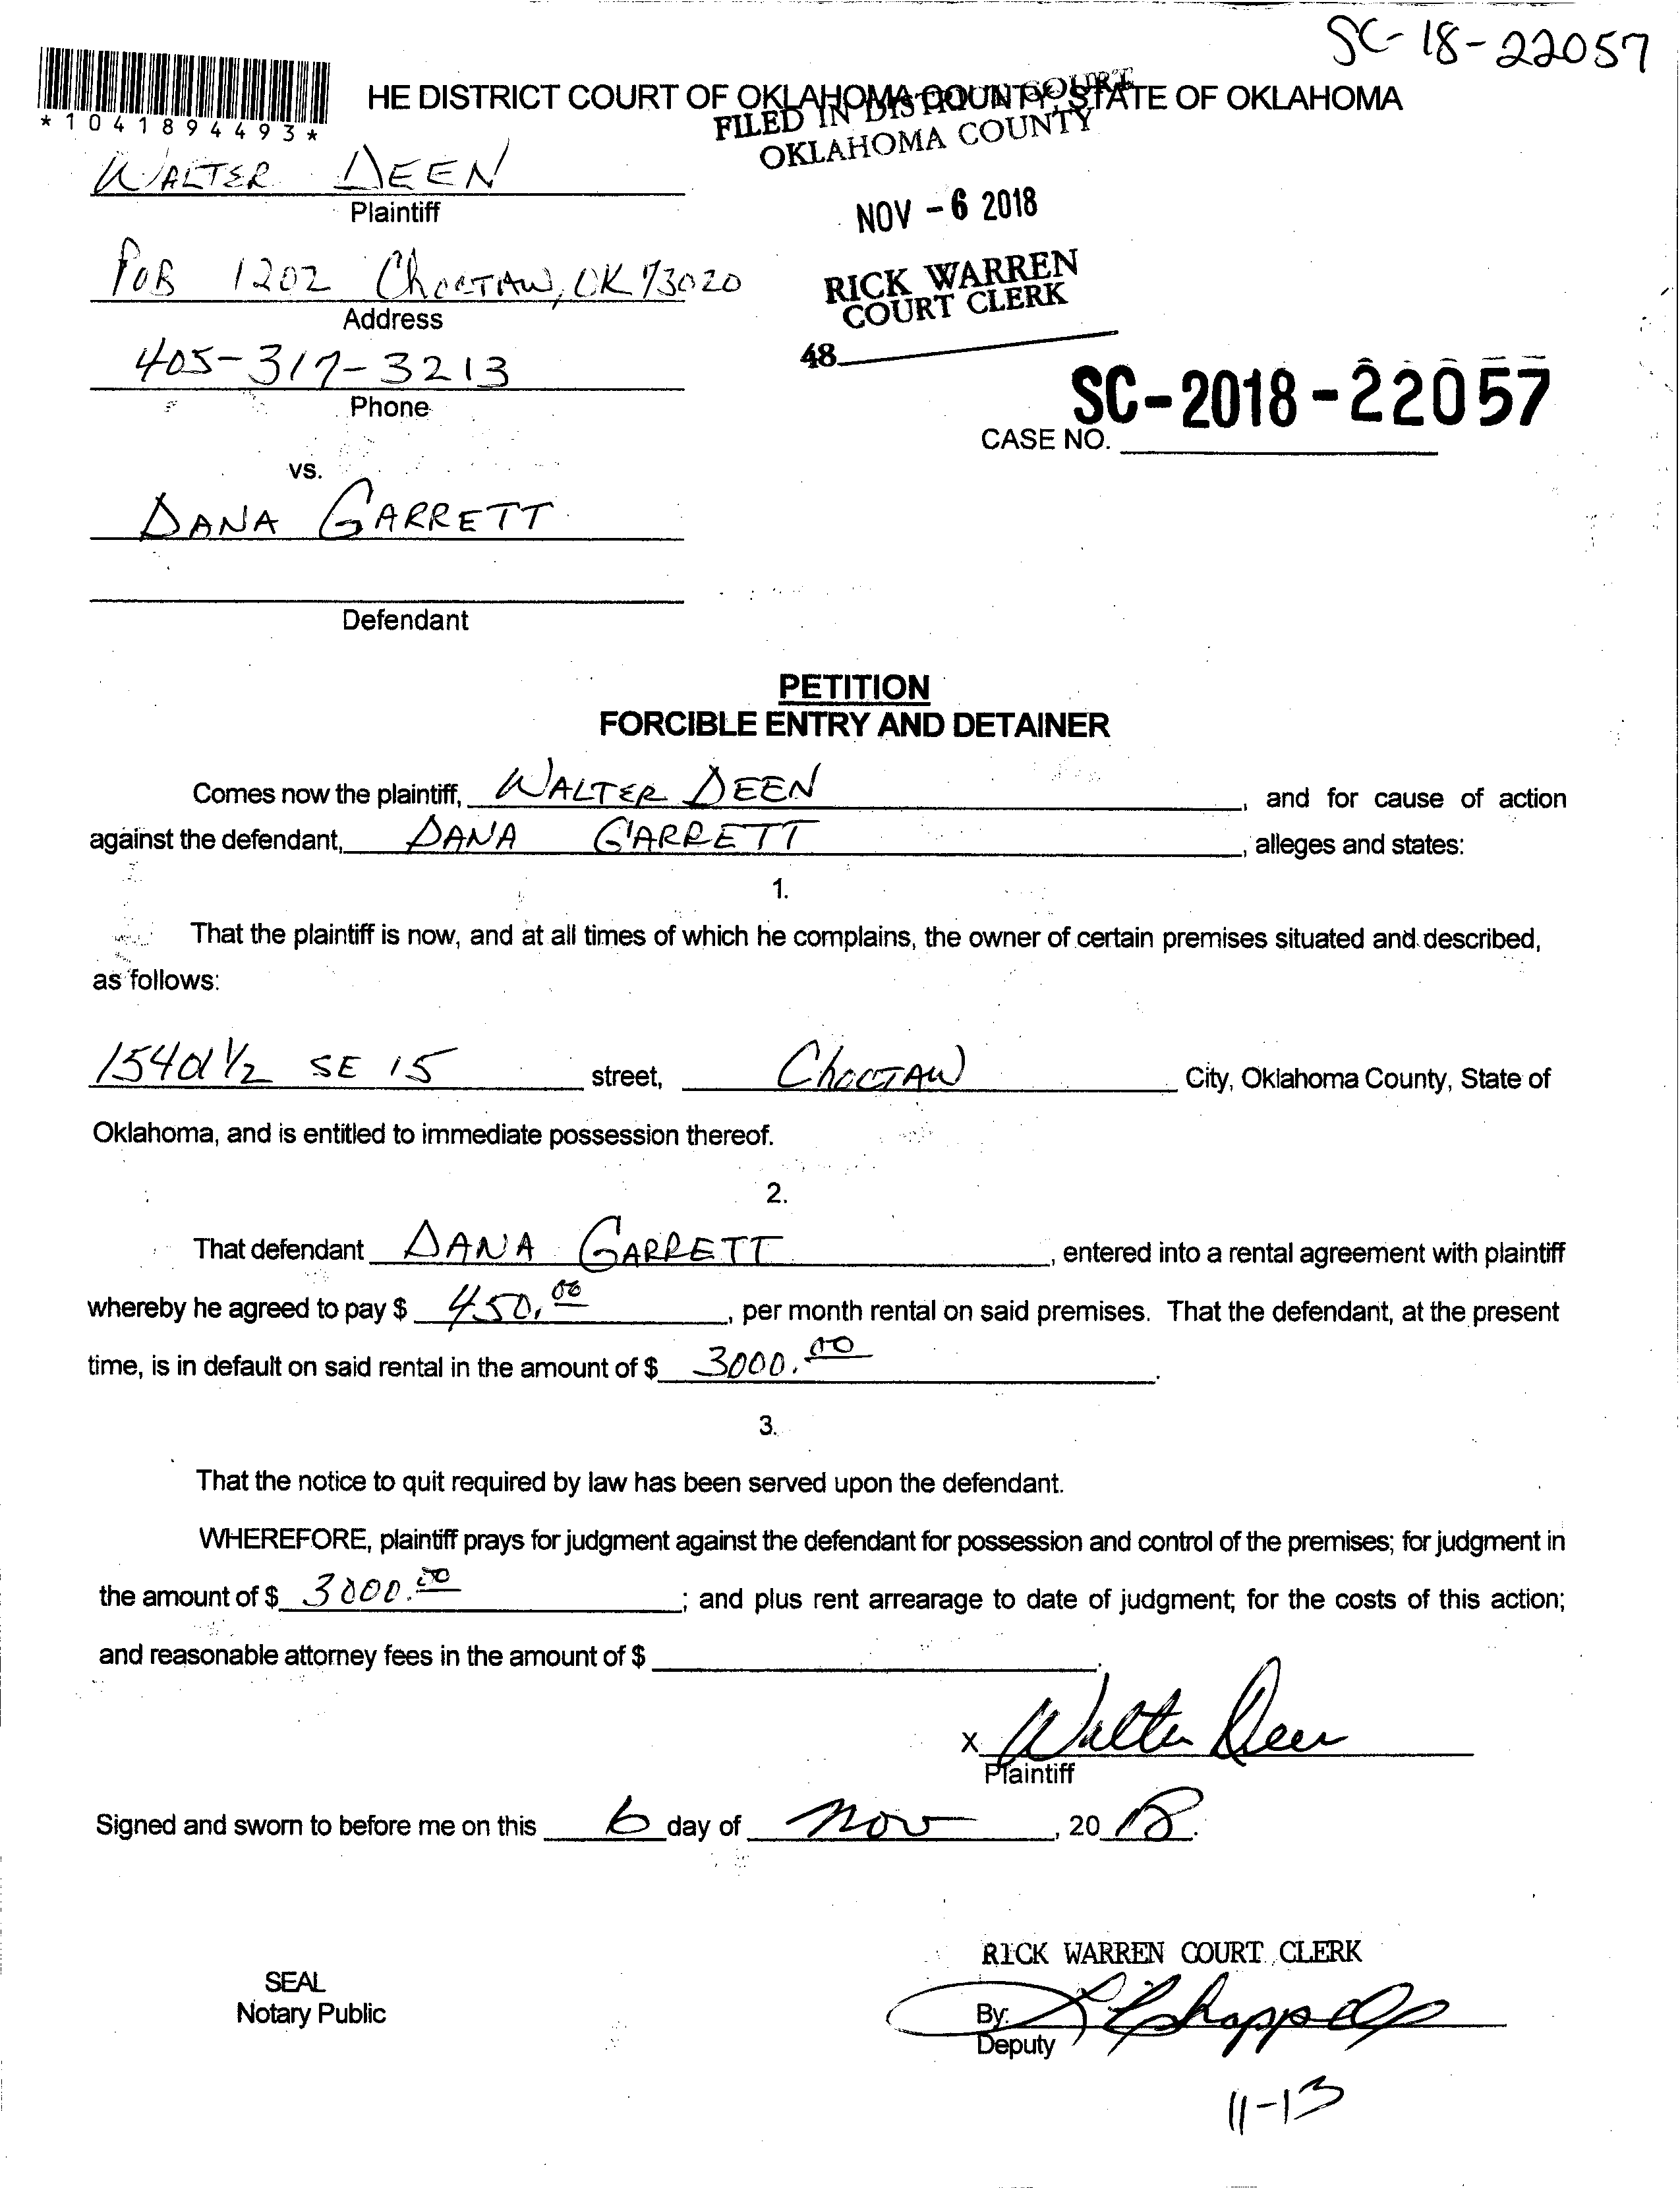 SC-18-22057
*1041894493*
HE DISTRICT COURT OF OKLAHOMA COUNTY, STATE OF OKLAHOMA
FILED IN DISTRICT COURT
OKLAHOMA COUNTY
WALTER DEEN
Plaintiff
NOV - 6 2018
POB 1202 Choctaw, OK 73020
Address
RICK WARREN
COURT CLERK
405-317-3213
Phone
48
SC-2018-22057
CASE NO.
vs.
DANA GARRETT
Defendant
PETITION
FORCIBLE ENTRY AND DETAINER
Comes now the plaintiff, WALTER DEEN, and for cause of action
against the defendant, DANA GARRETT, alleges and states:
1.
That the plaintiff is now, and at all times of which he complains, the owner of certain premises situated and described,
as follows:
15401 1/2 SE 15 street, Choctaw City, Oklahoma County, State of
Oklahoma, and is entitled to immediate possession thereof.
2.
That defendant DANA GARRETT, entered into a rental agreement with plaintiff
whereby he agreed to pay $ 450.00, per month rental on said premises. That the defendant, at the present
time, is in default on said rental in the amount of $ 3000.00.
3.
That the notice to quit required by law has been served upon the defendant.
WHEREFORE, plaintiff prays for judgment against the defendant for possession and control of the premises; for judgment in
the amount of $ 3000.00; and plus rent arrearage to date of judgment; for the costs of this action;
and reasonable attorney fees in the amount of $ .
x Walter Deen
Plaintiff
Signed and sworn to before me on this 6 day of Nov, 2018.
RICK WARREN COURT CLERK
SEAL
Notary Public
By:
Deputy
11-13